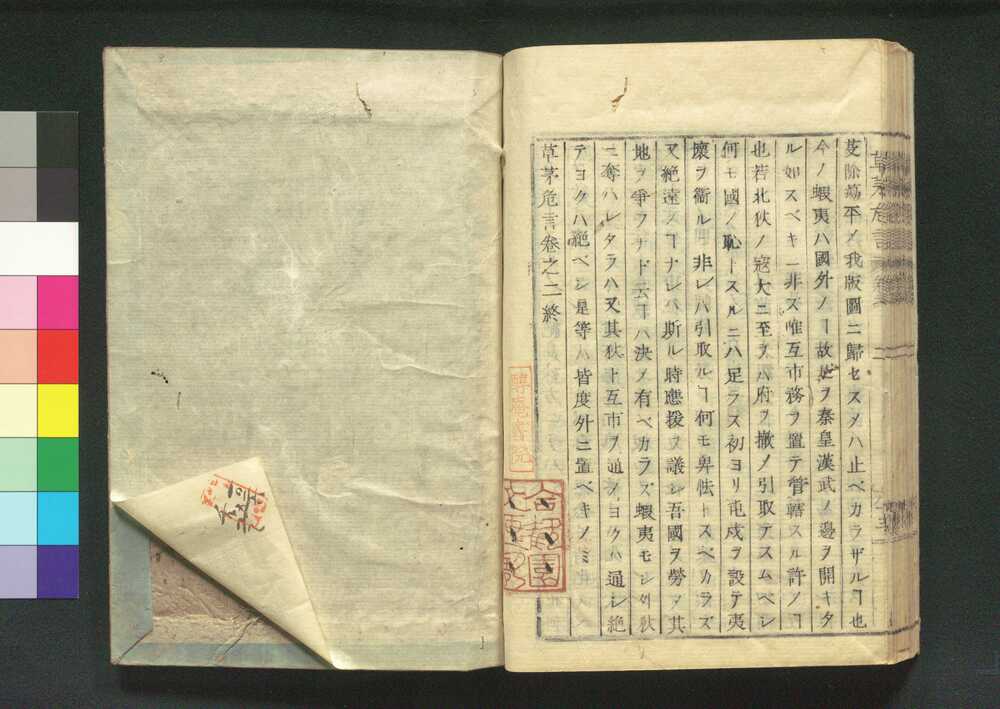 芟除蕩平〆我版圖ニ歸セスメハ止ベカラザルヿ也
今ノ蝦夷ハ國外ノヿ故是ヲ秦皇漢武ノ邊ヲ開キタ
ル如スベキニ非ズ唯互市務ヲ置テ管轄スル許ノヿ
也若北狄ノ寇大ニ至ラハ府ヲ撤〆引取テスムベシ
何モ國ノ恥トスルニハ足ラス初ヨリ屯戍ヲ設テ夷
壞ヲ衞ル非レハ引取ルヿ何モ卑怯トスベカラズ
又絶遠ノヿナレハ斯ル時應援ヲ議シ吾國ヲ勞〆其
地ヲ爭フナド云ヿハ決〆有ベカラズ蝦夷モシ外狄
ニ奪ハレタラハ又其狄ト互市ヲ通〆ヨクハ通シ絶
テヨクハ絶ベシ是等ハ皆度外ニ置ベキノミ
草茅危言卷之二終
草茅危言